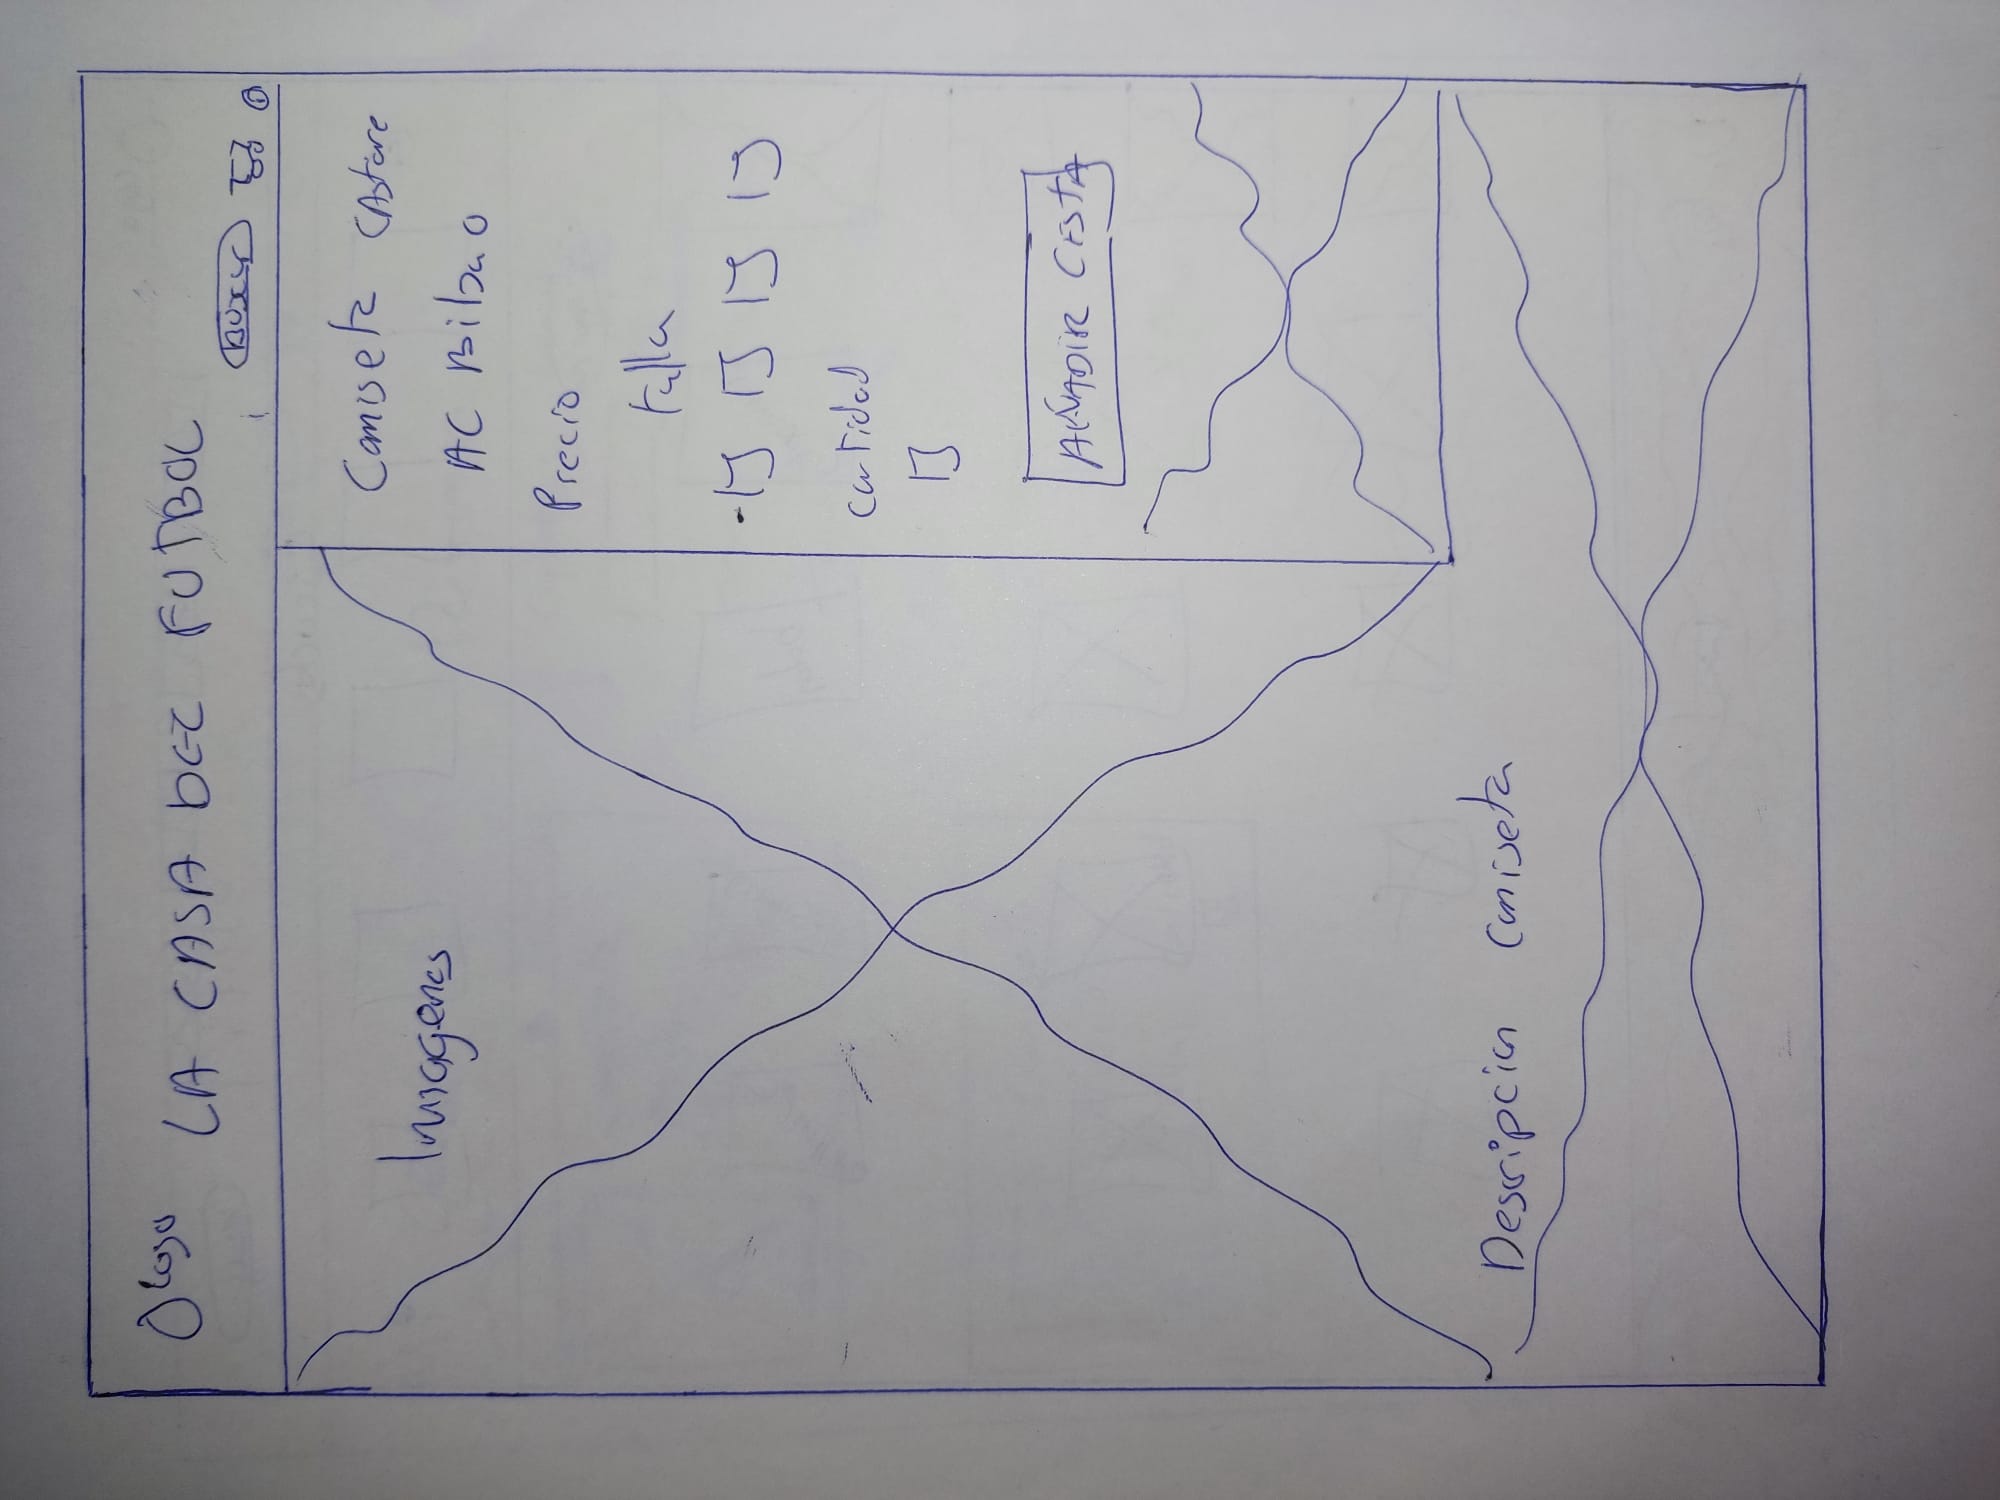 Logo LA CASA DEL FUTBOL
Buscar
Camiseta Castore
AC Bilbao
Precio
talla
cantidad
AÑADIR CESTA
Imagenes
Descripcion Camiseta